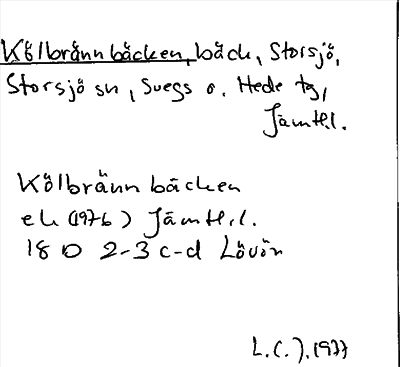 Kölbrännbäcken, bäck, Storsjö,
Storsjö sn, Svegs o. Hede tg,
Jämtl. l.
Kölbrännbäcken
ek (1976) Jämtl. l.
18 D 2-3 c-d Lövön
L.C.J. 1977